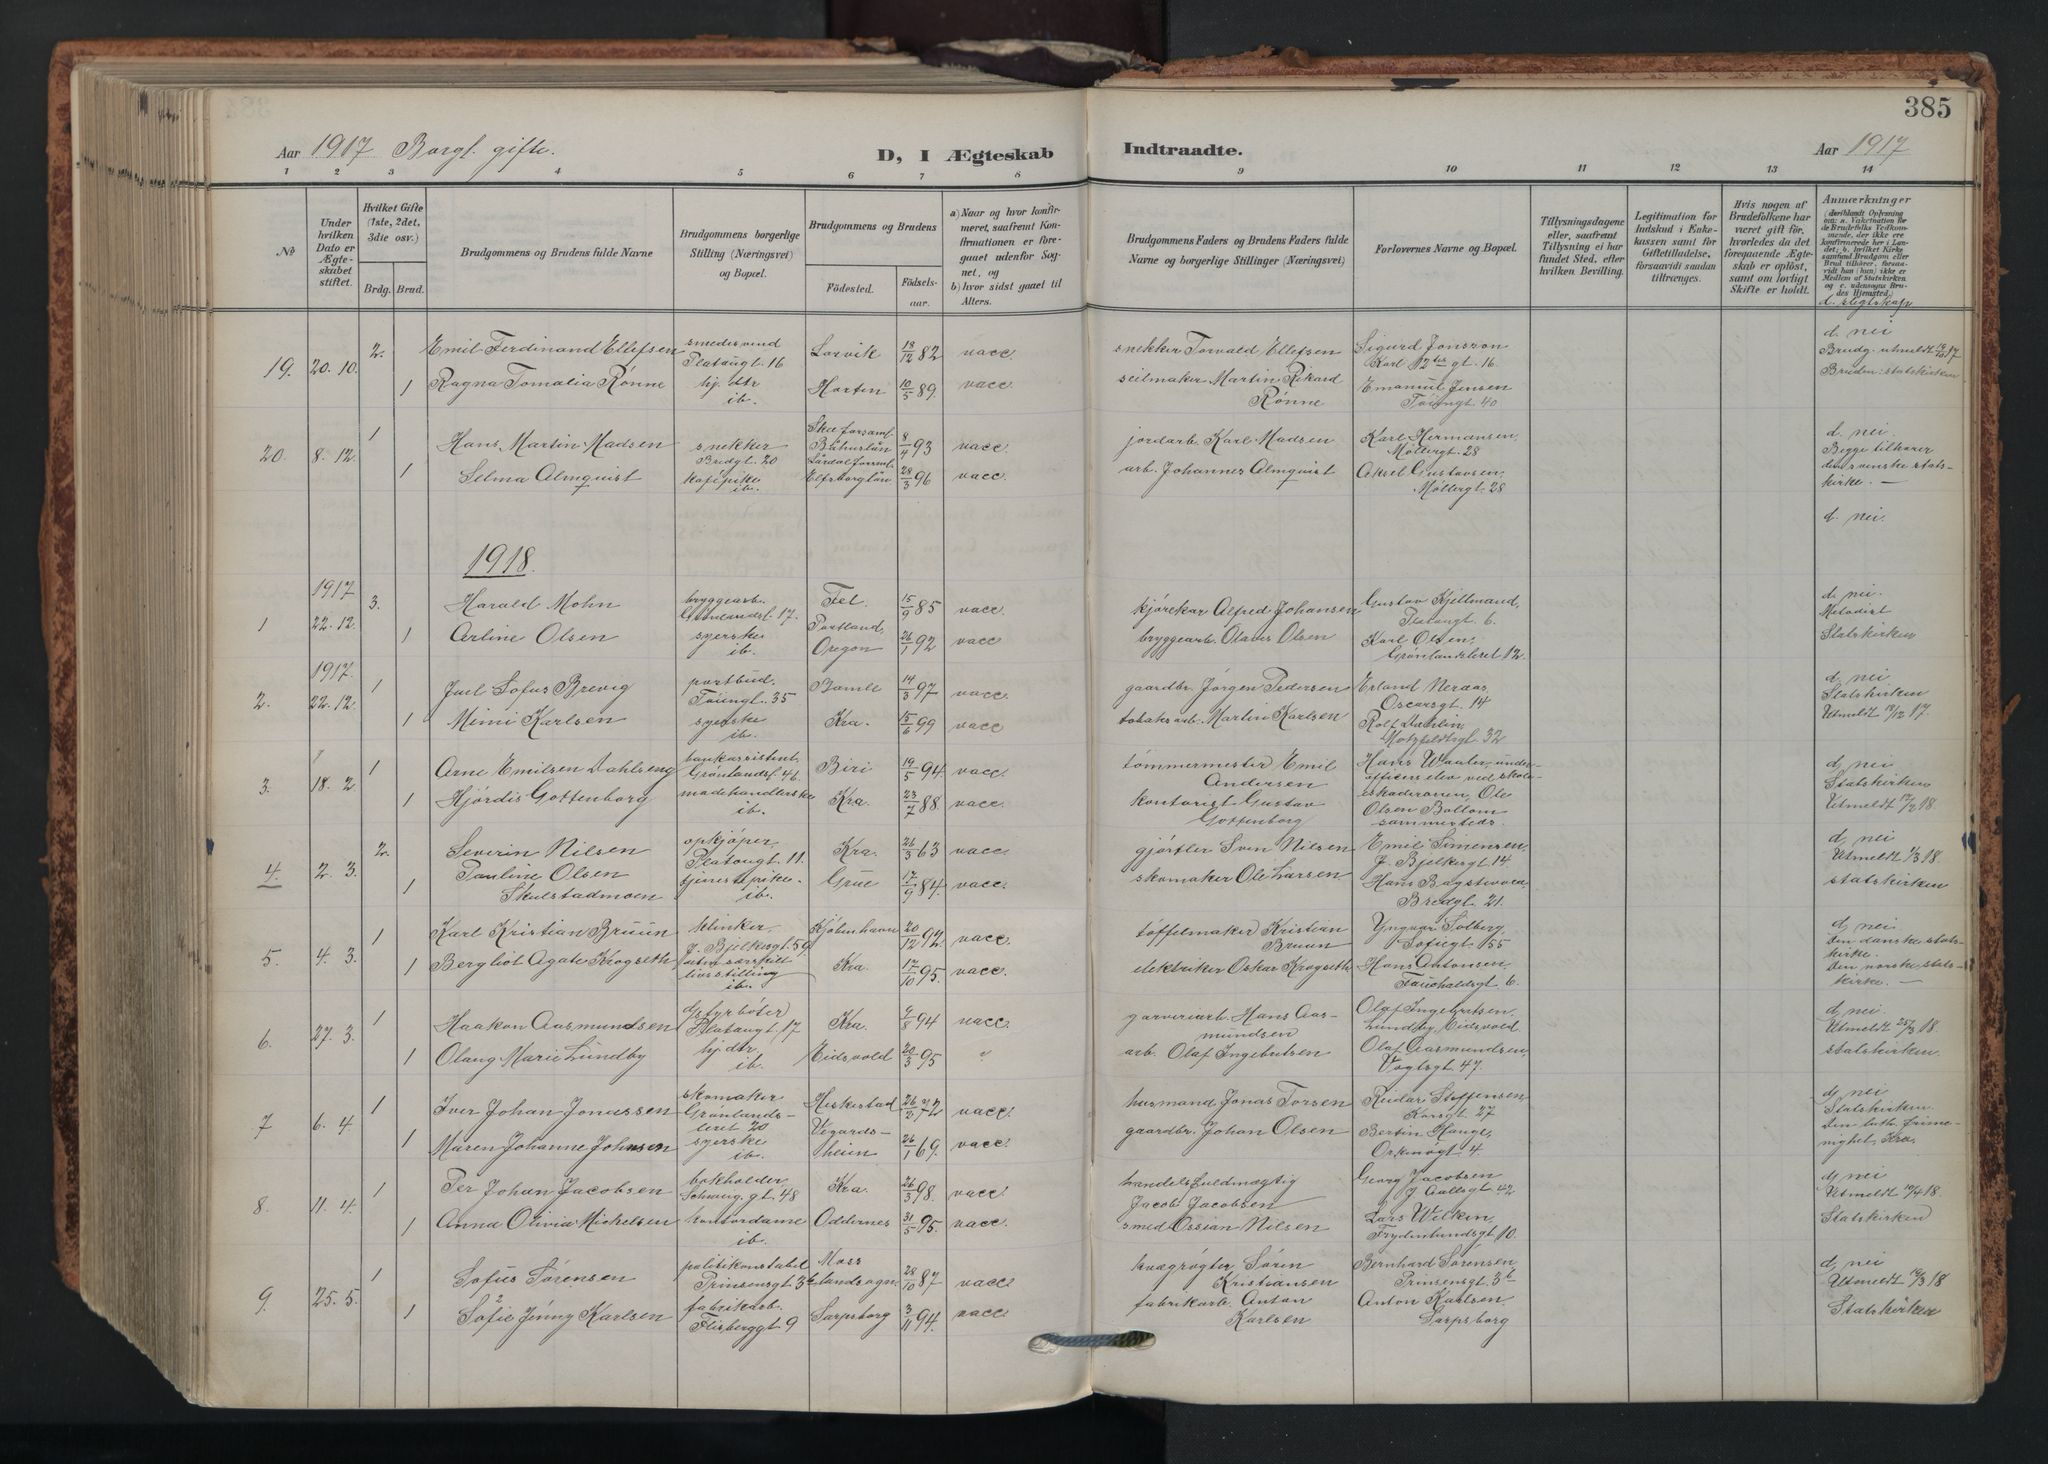 385
Aar 1917 Borgl. gifte.
D, I Ægteskab Indtraadte.
Aar 1917
1 2 3 4 5 6 7 8 9 10 11 12 13 14
No
Under hvilken Dato er Ægteskabet stiftet.
Hvilket Gifte (1ste, 2det, 3die osv.)
Brdg. Brud.
Brudgommens og Brudens fulde Navne
Brudgommens borgerlige Stilling (Næringsvei) og Bopæl.
Brudgommens og Brudens
Födested. Födselsaar.
a) Naar og hvor konfirmeret, saafremt Konfirmationen er foregaaet udenfor Sognet, og b) hvor sidst gaaet til Alters.
Brudgommens Faders og Brudens Faders fulde Navne og borgerlige Stillinger (Næringsvei)
Forlovernes Navne og Bopæl.
Tillysningsdagene eller, saafremt Tillysning ei har fundet Sted, efter hvilken Bevilling.
Legitimation for Indskud i Enkekassen samt for Giftetilladelse, forsaavidt saadan tiltrænges.
Hvis nogen af Brudefolkene har været gift för, hvorledes da det foregaaende Ægteskab er oplöst, samt om lovligt Skifte er holdt.
Anmærkninger
d. slegtskap
19. 20. 10. 2. Emil Ferdinand Ellefsen smedesvend Platougt. 16 Larvik 18/12 82 vacc. snekker Torvald Ellefsen Sigurd Jonsson Karl 12tes gt. 16. d. nei Brudg. utmeldt 19/10 17
1 Ragna Tomalia Rønne hj. dtr ib. Horten 10/5 89. vacc. seilmaker Martin Rikard Rønne Emanuel Jensen Tøiengt. 40 Bruden: statskirken
20. 8. 12. 1 Hans Martin Madsen snekker Bredgt. 20 8/4 93 vacc. jordarb. Karl Madsen Karl Hermansen, Møllergt. 28 d. nei. Begge tilhører
1 Selma Almquist ib. Elfsborglän 28/3 96 vacc. arb. Johannes Almquist Aksel Gustavsen, Møllergt. 28 den svenske statskirke. —
d. nei.
1918.
1 1917 22. 12. 3. Harald Mohn bryggearb. Grønlandsl. 17. Fet. 15/9 85 vacc. kjørekar Alfred Johansen Gustav Kjellmand, Platougt. 6. d. nei. Metodist
1 Arline Olsen syerske ib. Portland, Oregon 26/1 92 vacc. bryggearb. Olaves Olsen Karl Olsen, Grønlandsleret 12. Statskirken
2. 1917. 22. 12. 1 Juel Sofus Brevig postbud. Tøiengt. 35 Bamle 14/3 97 vacc. gaardbr. Jørgen Pedersen Erland Neraas, Oscarsgt. 14 d. nei Statskirken
1 Mimi Karlsen syerske ib. Kra. 15/6 99 vacc. tobaksarb. Martin Karlsen Rolf Dahlin, Motzfeldtsgt. 32 Utmeldt 17.
3. 18. 2 1 Arne Emilsen Dahlseng bankassistent, Grønlandsl. 46. Biri 19/5 94 vacc. tømmermester Emil Andersen Hans Waaler, underofficerselev ved skoleskadronen, Ole d. nei Statskirken
1 Hjørdis Gottenborg modehandlerske ib. Kra. 23/7 88 vacc. kontorist Gustav Gottenborg Olsen Bottom sammesteds. Utmeldt 18
4. 2. 3. 2. Severin Nilsen opkjøper, Platougt. 11. Kra. 26/3 63 vacc. gjørtler Sven Nilsen Emil Simensen, J. Bjelkesgt. 14. d. nei Utmeldt 1/3 18.
1 Pauline Olsen Skulstadmoen tjenestepike. ib. Grue 17/9 84. vacc. skomaker Ole Larsen Hans Bredgt. 21. statskirken
5. 4. 3. 1 Karl Kristian Bruun klinker, J. Bjelkesgt. 59. Kjøbenhavn 20/12 92. vacc. tøffelmaker Kristian Bruun Yngvar Solberg, Sofiegt. 55 d. nei. Den danske statskirke.
1 Bergliot Agate Krogseth uten særskilt livsstilling ib. Kra. 17/10 95. vacc. elektriker Oskar Krogseth Hans Antonsen, Fauchaldsgt. 6. Den norske statskirke. —
6. 27. 3. 1 Haakon Aasmundsen fyrbøter Platougt. 17 Kra. 94 vacc. garveriarb. Hans Aasmundsen Olaf Ingebretsen, Lundby, Eidsvold d. nei Utmeldt 25/3 18.
1 Olaug Marie Lundby hj. dtr ib. Eidsvold 20/3 95 " arb. Olaf Ingebretsen Olaf Aasmundsen, Vogtsgt. 47. statskirken.
7 6. 4. 1 Iver Johan Jonassen skomaker Grønlandsleret 20 Heskestad 26/2 72 vacc. husmand Jonas Torsen Reidar Steffensen Korsgt. 27 d. nei Statskirken.
1 Maren Johanne Johnsen syerske ib. Vegardsheien 26/1 69. vacc. gaardbr. Johan Olsen Bertin Hauge, 4 Den luth. frimenighet, Kra.
8. 11. 4. 1 Per Johan Jacobsen bokholder, Schweig. gt. 48 Kra. 26/3 98. vacc. handelsfuldmægtig Jacob Jacobsen Georg Jacobsen J. Aallsgt. 42 d. nei Utmeldt 10/4 18.
1 Anna Olivia Michelsen kontordame ib. Oddernes 31/5 95. vacc. smed Ossian Nilsen Lars Wilken, Frydenlundsgt. 10. Statskirken
9. 25. 5. 1 Sofus Sørensen politikonstabel Prinsensgt. 3b Moss landsogn 28/10 87 vacc. kvægrøgter Søren Kristiansen Bernhard Sørensen Prinsensgt. 3b d. nei Utmeldt 18
1 Sofie Jenny Karlsen fabrikarb. Flisberggt. 9 Sarpsborg 3/11 94. vacc. fabrikarb. Anton Karlsen Anton Karlsen Sarpsborg Statskirken